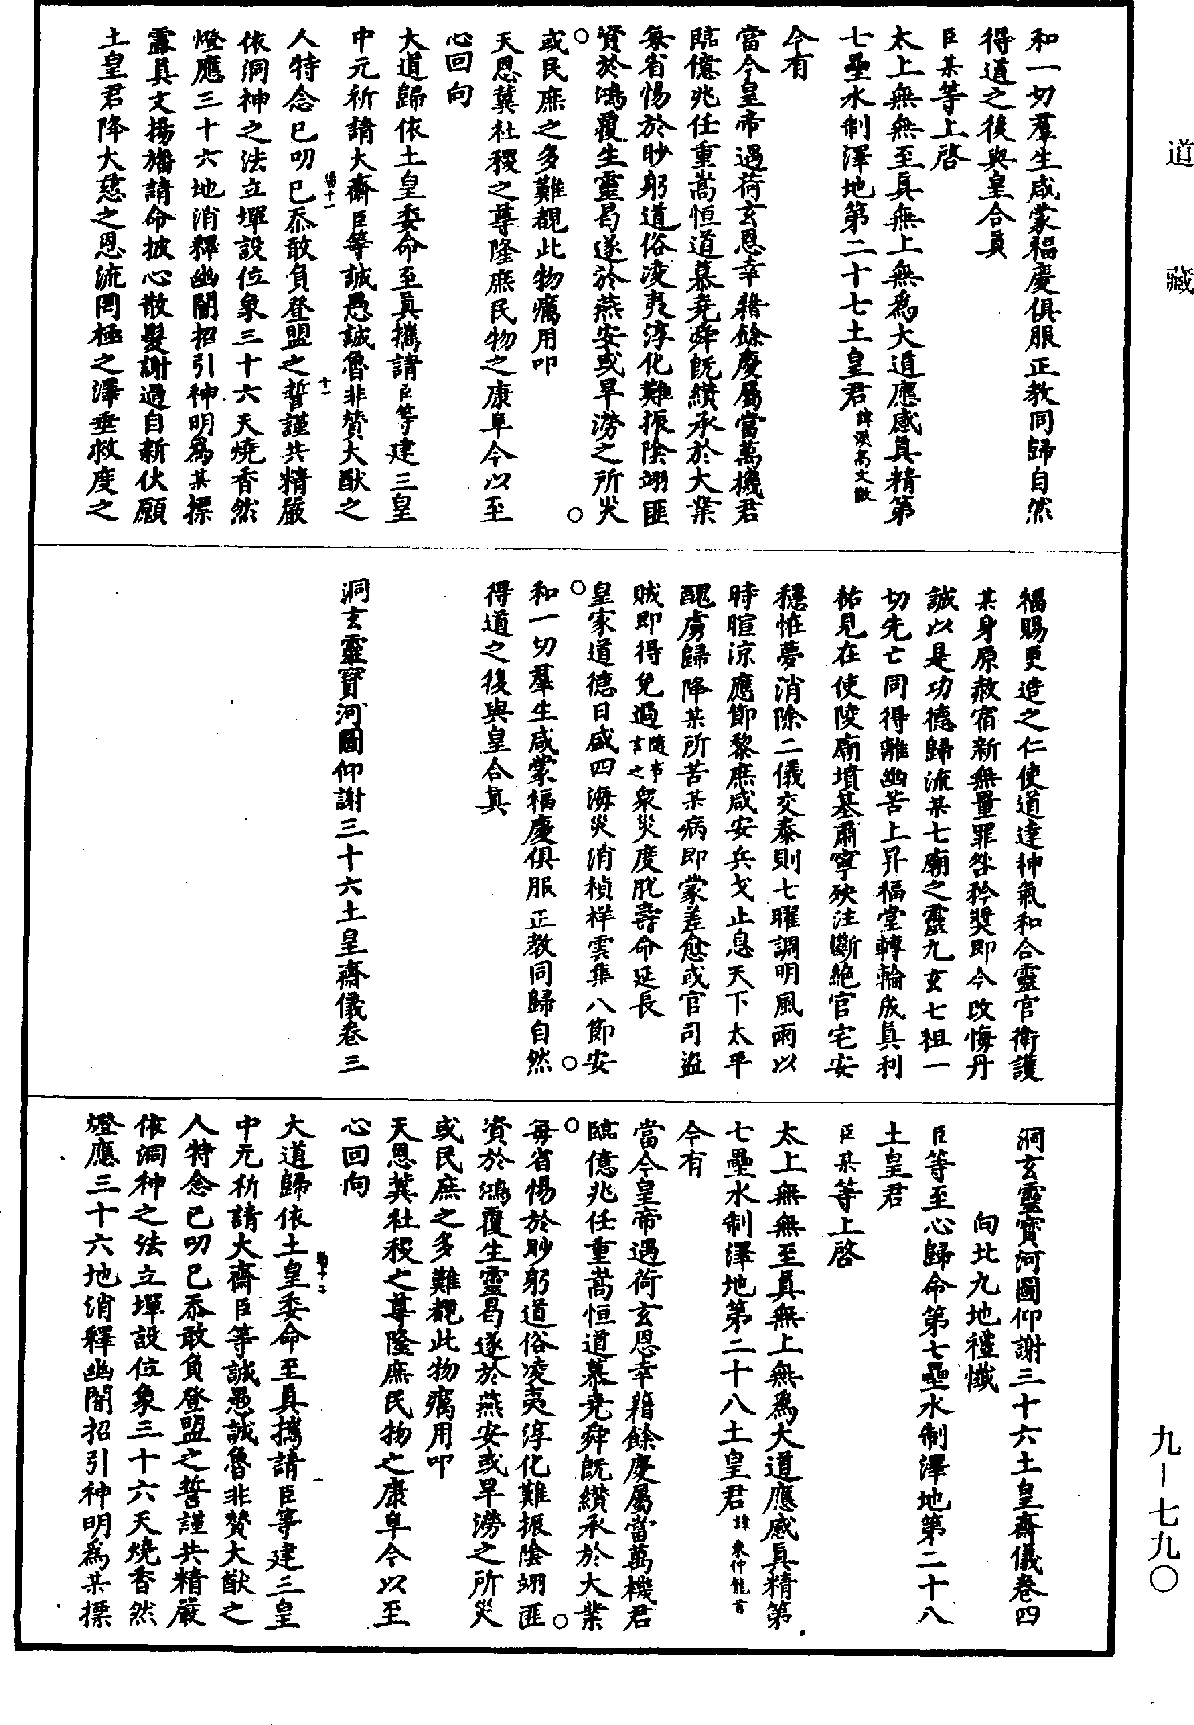 道藏
和一切羣生咸蒙福慶俱服正教同歸自然
得道之後與皇合眞
臣某等上啓
太上無無至眞無上無爲大道應感眞精第
七壘水制澤地第二十七土皇君諱張高文徹
今有
當今皇帝遇荷玄恩幸籍餘慶屬當萬機君
臨億兆任重嵩恒道慕堯舜旣纘承於大業
每省惕於眇躬道俗淩夷淳化難振陰翊匪
資於鴻覆生靈曷遂於燕安或旱澇之所災
或民庶之多難覩此物癘用叩
天恩冀社稷之尊隆庶民物之康阜今以至
心回向
大道歸依土皇委命至眞攜請臣等建三皇
中元祈請大齋臣等誠愚誠魯非贊大猷之
人特念已叨已忝敢負登盟之誓謹共精嚴
依洞神之法立墠設位象三十六天燒香然
燈應三十六地消釋幽闇招引神明爲某摽
露眞文揚旛請命披心散髮謝過自新伏願
土皇君降大慈之恩流罔極之澤垂救度之
福賜更造之仁使道達神氣和合靈官衛護
某身原赦宿新無量罪咎矜奬即今改悔丹
誠以是功德歸流某七廟之靈九玄七祖一
切先亡同得離幽苦上昇福堂轉輪成眞利
祐見在使陵廟墳墓肅寧殃注斷絕官宅安
穩恠夢消除二儀交泰則七曜調明風雨以
時暄涼應節黎庶咸安兵戈止息天下太平
醜虜歸降某所苦某病即蒙差愈或官司盜
賊即得免過隨事言之衆災度脫壽命延長
皇家道德日盛四海災消楨祥雲集八節安
和一切羣生咸蒙福慶俱服正教同歸自然
得道之後與皇合眞
洞玄靈寶河圖仰謝三十六土皇齋儀卷三
洞玄靈寶河圖仰謝三十六土皇齋儀卷四
向北九地禮懺
臣等至心歸命第七壘水制澤地第二十八
土皇君
臣某等上啓
太上無無至眞無上無爲大道應感眞精第
七壘水制澤地第二十八土皇君諱東仲龍首
今有
當今皇帝遇荷玄恩幸籍餘慶屬當萬機君
臨億兆任重嵩恒道慕堯舜旣纘承於大業
每省惕於眇躬道俗淩夷淳化難振陰翊匪
資於鴻覆生靈曷遂於燕安或旱澇之所災
或民庶之多難覩此物癘用叩
天恩冀社稷之尊隆庶民物之康阜今以至
心回向
大道歸依土皇委命至眞攜請臣等建三皇
中元祈請大齋臣等誠愚誠魯非贊大猷之
人特念已叨已忝敢負登盟之誓謹共精嚴
依洞神之法立墠設位象三十六天燒香然
燈應三十六地消釋幽闇招引神明爲某摽
九—七九〇